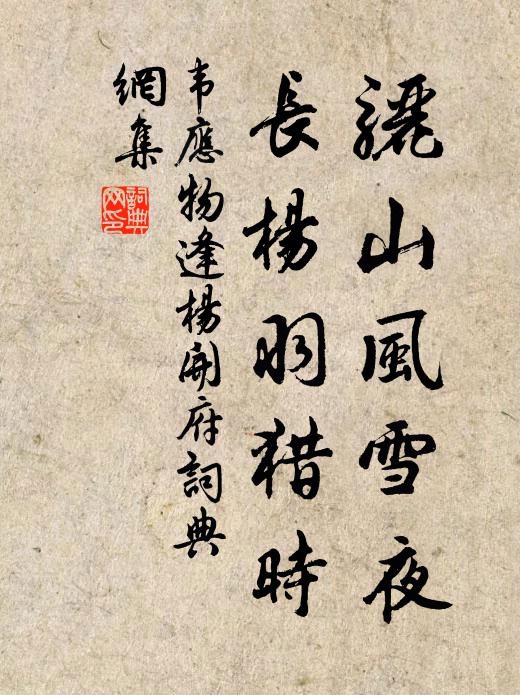 驪山風雪夜
長楊羽猎時
韦應物逢楊開府詞典
網集
詞典
网印